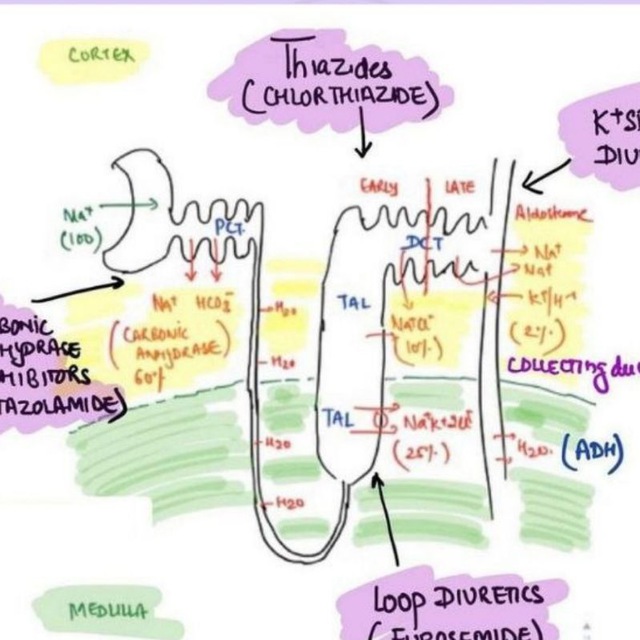 CORTEX
Thiazides
(CHLORTHIAZIDE)
K+S
DIU
EARLY
LATE
Na+
(100)
PCT
DCT
Aldosterone
Na+
Na+
K+/H+
(2%)
Na+ HCO3-
(CARBONIC
ANHYDRASE)
60%
H20
H20
H20
H20
TAL
TAL
NaCl
(10%)
Na+K+2Cl-
(25%)
COLLECTING du
H20
(ADH)
BONIC
HYDRASE
HIBITORS
TAZOLAMIDE)
MEDULLA
LOOP DIURETICS
(FUROSEMIDE)